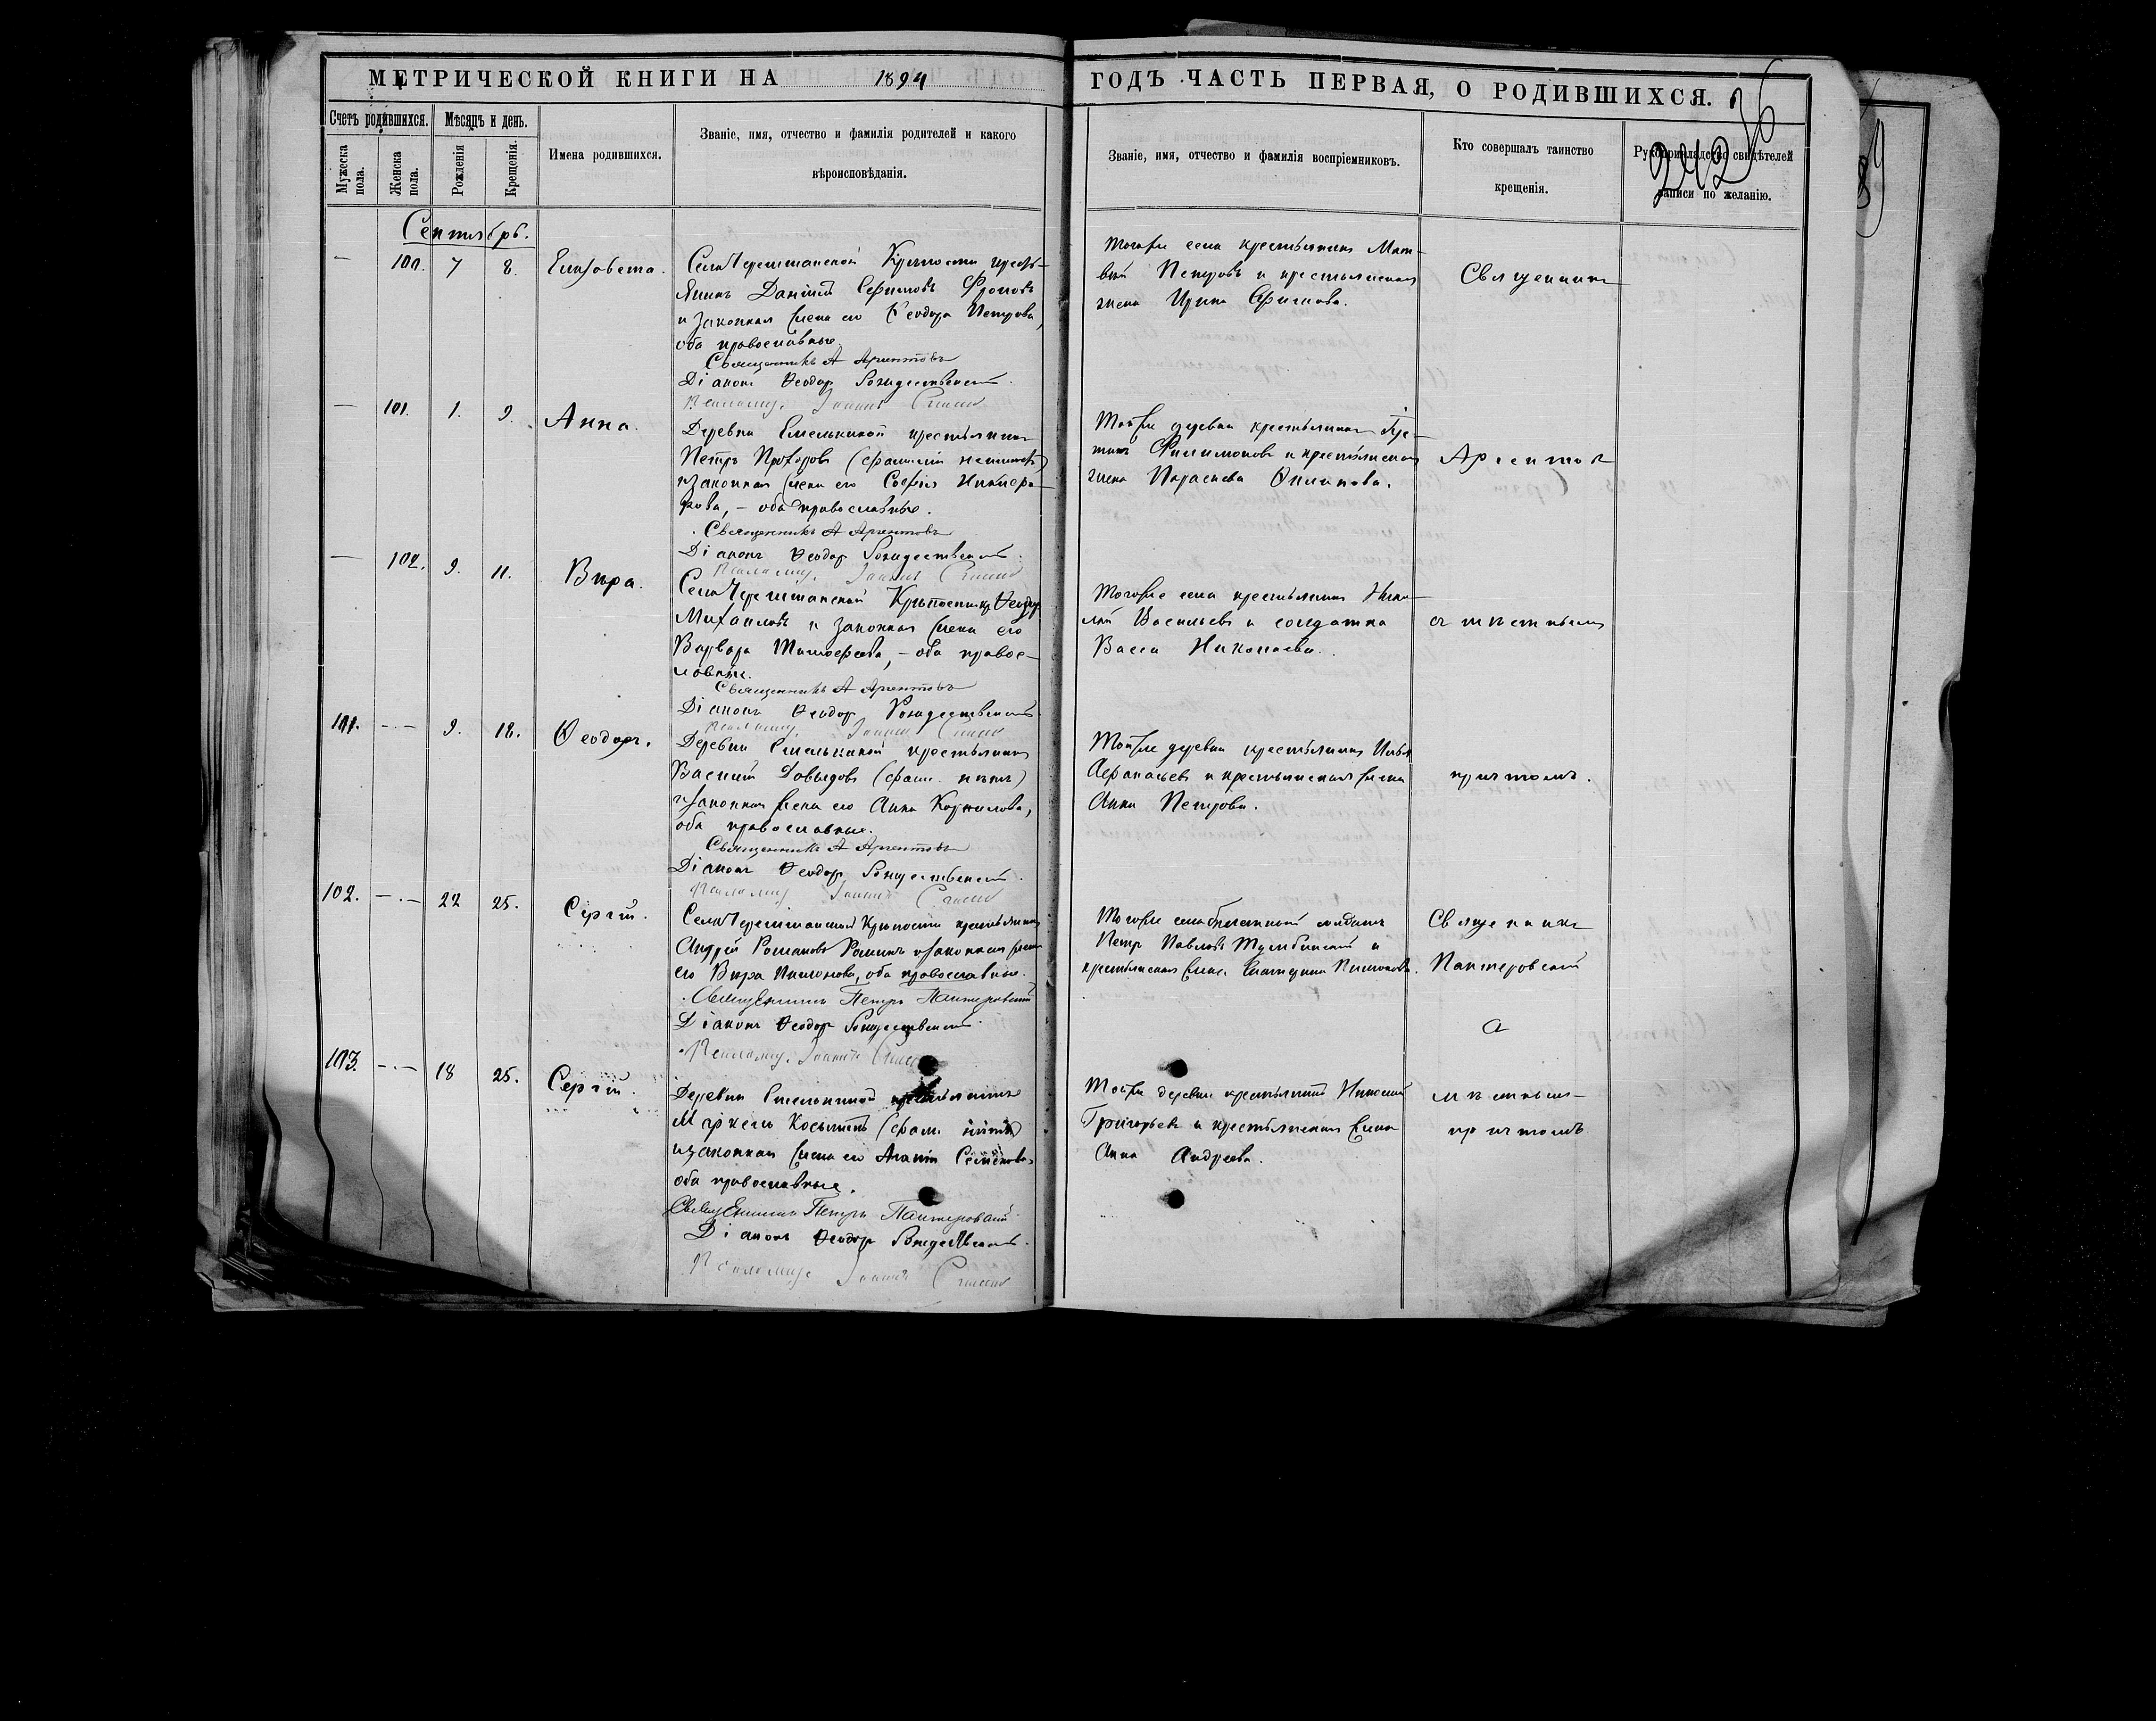 МЕТРИЧЕСКОЙ КНИГИ НА 1894 ГОДЪ ЧАСТЬ ПЕРВАЯ, О РОДИВШИХСЯ.
36
242
Счетъ родившихся.
Мужеска пола.
Женска пола.
Мѣсяцъ и день.
Рожденія
Крещенія.
Имена родившихся.
Званіе, имя, отчество и фамилія родителей и какого
вѣроисповѣданія.
Званіе, имя, отчество и фамилія воспріемниковъ.
Кто совершалъ таинство
крещенія.
Рукоприкладство свидѣтелей
записи по желанію.
Сентябрь.
100. 7 8. Елизовета.
Села Черемшанской Крѣпости кресть-
янинъ Даніилъ Ефимовъ Фроловъ
и законная жена его Ѳеодора Петрова,
оба православные.
Священникъ А Аргентовъ
Діаконъ Ѳеодоръ Рождественскій.
Тогоже села крестьянинъ Мат-
вѣй Петровъ и крестьянская
жена Ирина Ефимова.
Священникъ
101. 1. 9. Анна.
Деревни Емелькиной крестьянинъ
Петръ Прохоровъ
и законная жена его Софія Никифо-
рова, – оба православные.
Священникъ А Аргентовъ
Діаконъ Ѳеодоръ Рождественскій.
Тойже деревни крестьянинъ
Филимоновъ и крестьянская
жена Параскева Филипова.
Аргентовъ
102. 9. 11. Вѣра.
Села Черемшанской Крѣпости кр. Ѳеодоръ
Михаиловъ и законная жена его
Варвара Тимофеева, – оба право-
славные.
Священникъ А Аргентовъ
Діаконъ Ѳеодоръ Рождественскій.
Тогоже села крестьянинъ Нико-
лай Васильевъ и солдатка
Васса Николаева.
съ мѣстнымъ
101. 9. 18. Ѳеодоръ.
Деревни Емелькиной крестьянинъ
Василій Давыдовъ (фами. нѣтъ)
и законная жена его Анна Корнилова,
оба православные.
Священникъ А Аргентовъ
Діаконъ Ѳеодоръ Рождественскій.
Тойже деревни крестьянинъ Илья
Афанасьевъ и крестьянская жена
Анна Петрова.
причтомъ.
102. 22 25. Сергій.
Села Черемшанской Крѣпости крестьянинъ
Андрей Романовъ и законная жена
его Вѣра, оба православные.
Священникъ Петръ Пантеровскій
Діаконъ Ѳеодоръ Рождественскій.
Тогоже села солдатъ
Петръ Павловъ и
крестьянская жена
Священникъ
Пантеровскій
103. 18 25. Сергій.
Деревни Емелькиной крестьянинъ
Маркелъ Косьминъ (фам. нѣтъ)
и законная жена его Агапія Семенова,
оба православные.
Священникъ Петръ Пантеровскій
Діаконъ Ѳеодоръ Рождественскій.
Тойже деревни крестьянинъ
Григорьевъ и крестьянская жена
Анна Андреева.
съ
мѣстнымъ
причтомъ.